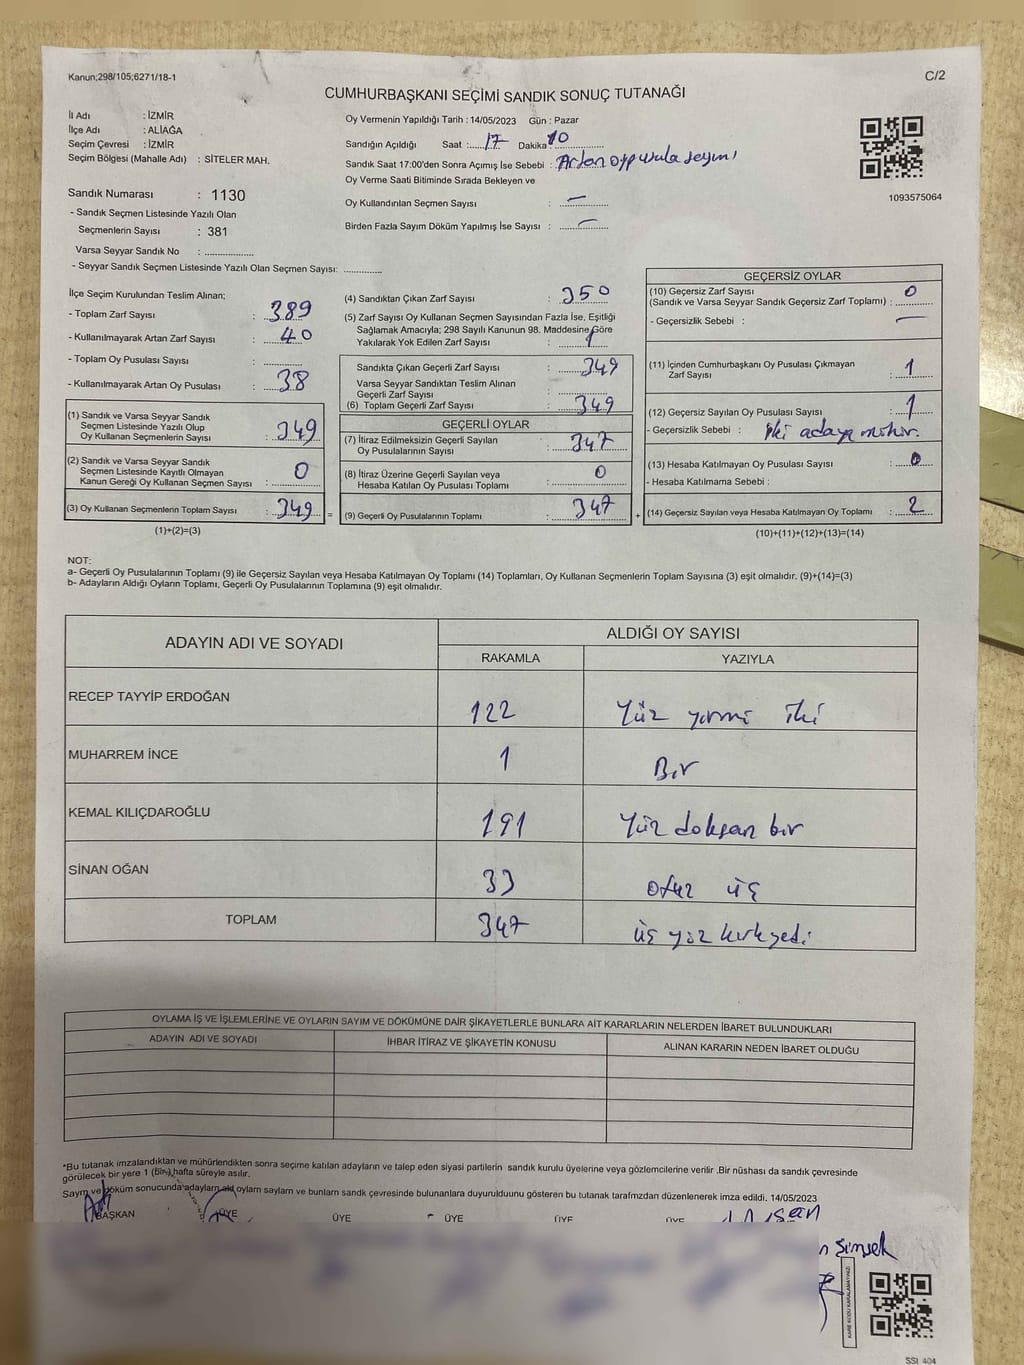 Kanun;298/105;6271/18-1
C/2
CUMHURBAŞKANI SEÇİMİ SANDIK SONUÇ TUTANAĞI
İl Adı : İZMİR
İlçe Adı : ALİAĞA
Seçim Çevresi : İZMİR
Seçim Bölgesi (Mahalle Adı) : SİTELER MAH.
Sandık Numarası : 1130
- Sandık Seçmen Listesinde Yazılı Olan
Seçmenlerin Sayısı : 381
Varsa Seyyar Sandık No : ..............
- Seyyar Sandık Seçmen Listesinde Yazılı Olan Seçmen Sayısı: ............
Oy Vermenin Yapıldığı Tarih : 14/05/2023 Gün : Pazar
Sandığın Açıldığı Saat : 17 Dakika 10
Sandık Saat 17:00'den Sonra Açımış İse Sebebi : Artan oy pusula sayımı
Oy Verme Saati Bitiminde Sırada Bekleyen ve
Oy Kullandırılan Seçmen Sayısı : —
Birden Fazla Sayım Döküm Yapılmış İse Sayısı : —
1093575064
İlçe Seçim Kurulundan Teslim Alınan;
- Toplam Zarf Sayısı : 389
- Kullanılmayarak Artan Zarf Sayısı : 40
- Toplam Oy Pusulası Sayısı : ............
- Kullanılmayarak Artan Oy Pusulası : 38
(1) Sandık ve Varsa Seyyar Sandık
Seçmen Listesinde Yazılı Olup
Oy Kullanan Seçmenlerin Sayısı : 349
(2) Sandık ve Varsa Seyyar Sandık
Seçmen Listesinde Kayıtlı Olmayan
Kanun Gereği Oy Kullanan Seçmen Sayısı : 0
(3) Oy Kullanan Seçmenlerin Toplam Sayısı : 349 =
(1)+(2)=(3)
(4) Sandıktan Çıkan Zarf Sayısı : 350
(5) Zarf Sayısı Oy Kullanan Seçmen Sayısından Fazla İse, Eşitliği
Sağlamak Amacıyla; 298 Sayılı Kanunun 98. Maddesine Göre
Yakılarak Yok Edilen Zarf Sayısı : 1
Sandıkta Çıkan Geçerli Zarf Sayısı : 349
Varsa Seyyar Sandıktan Teslim Alınan
Geçerli Zarf Sayısı :
(6) Toplam Geçerli Zarf Sayısı : 349
GEÇERLİ OYLAR
(7) İtiraz Edilmeksizin Geçerli Sayılan
Oy Pusulalarının Sayısı : 347
(8) İtiraz Üzerine Geçerli Sayılan veya
Hesaba Katılan Oy Pusulası Toplamı : 0
(9) Geçerli Oy Pusulalarının Toplamı : 347 +
GEÇERSİZ OYLAR
(10) Geçersiz Zarf Sayısı
(Sandık ve Varsa Seyyar Sandık Geçersiz Zarf Toplamı) : 0
- Geçersizlik Sebebi : —
(11) İçinden Cumhurbaşkanı Oy Pusulası Çıkmayan
Zarf Sayısı : 1
(12) Geçersiz Sayılan Oy Pusulası Sayısı : 1
- Geçersizlik Sebebi : iki adaya mühür.
(13) Hesaba Katılmayan Oy Pusulası Sayısı : 0
- Hesaba Katılmama Sebebi :
(14) Geçersiz Sayılan veya Hesaba Katılmayan Oy Toplamı : 2
(10)+(11)+(12)+(13)=(14)
NOT:
a- Geçerli Oy Pusulalarının Toplamı (9) ile Geçersiz Sayılan veya Hesaba Katılmayan Oy Toplamı (14) Toplamları, Oy Kullanan Seçmenlerin Toplam Sayısına (3) eşit olmalıdır. (9)+(14)=(3)
b- Adayların Aldığı Oyların Toplamı, Geçerli Oy Pusulalarının Toplamına (9) eşit olmalıdır.
ADAYIN ADI VE SOYADI
ALDIĞI OY SAYISI
RAKAMLA YAZIYLA
RECEP TAYYİP ERDOĞAN 122 Yüz yirmi iki
MUHARREM İNCE 1 Bir
KEMAL KILIÇDAROĞLU 191 Yüz doksan bir
SİNAN OĞAN 33 otuz üç
TOPLAM 347 üç yüz kırkyedi
OYLAMA İŞ VE İŞLEMLERİNE VE OYLARIN SAYIM VE DÖKÜMÜNE DAİR ŞİKAYETLERLE BUNLARA AİT KARARLARIN NELERDEN İBARET BULUNDUKLARI
ADAYIN ADI VE SOYADI İHBAR İTİRAZ VE ŞİKAYETİN KONUSU ALINAN KARARIN NEDEN İBARET OLDUĞU
*Bu tutanak imzalandıktan ve mühürlendikten sonra seçime katılan adayların ve talep eden siyasi partilerin sandık kurulu üyelerine veya gözlemcilerine verilir .Bir nüshası da sandık çevresinde
görülecek bir yere 1 (bir) hafta süreyle asılır.
Sayım ve döküm sonucunda adayların aldığı oyların sayılarını ve bunların sandık çevresinde bulunanlara duyurulduğunu gösteren bu tutanak tarafımızdan düzenlenerek imza edildi. 14/05/2023
BAŞKAN ÜYE ÜYE ÜYE ÜYE ÜYE
Şimşek
KARE KODU KARALAMAYINIZ!
SSI 404